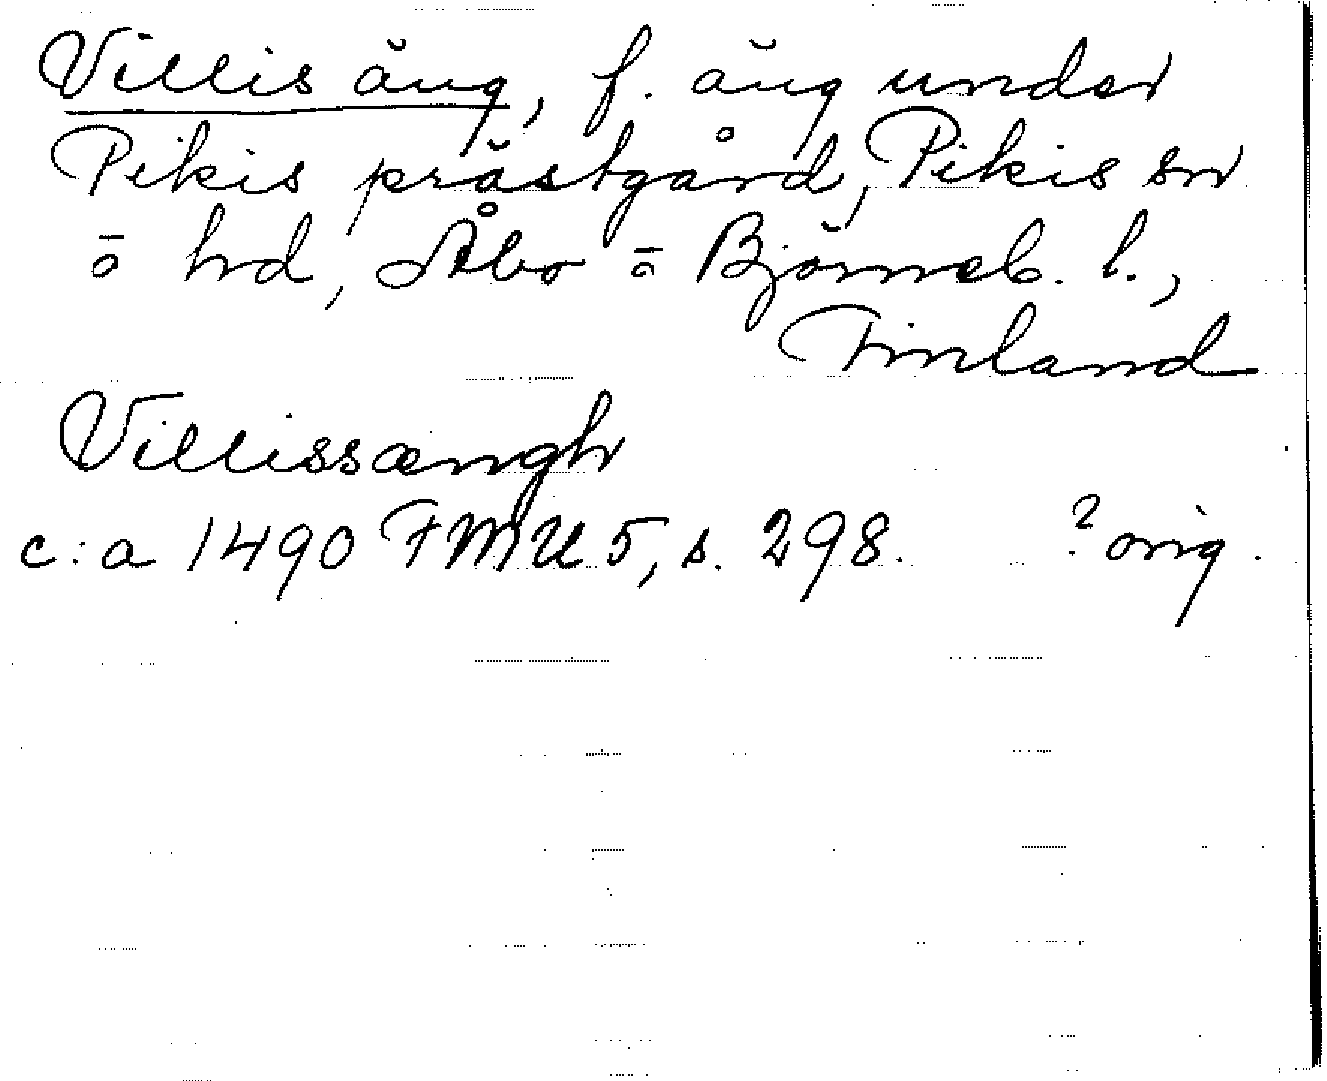 Villis äng, f. äng under
Pikis prästgård, Pikis sn
o hrd, Åbo o Björneb. l.,
Finland
Villissængh
c:a 1490 FMU 5, s. 298. ? orig.